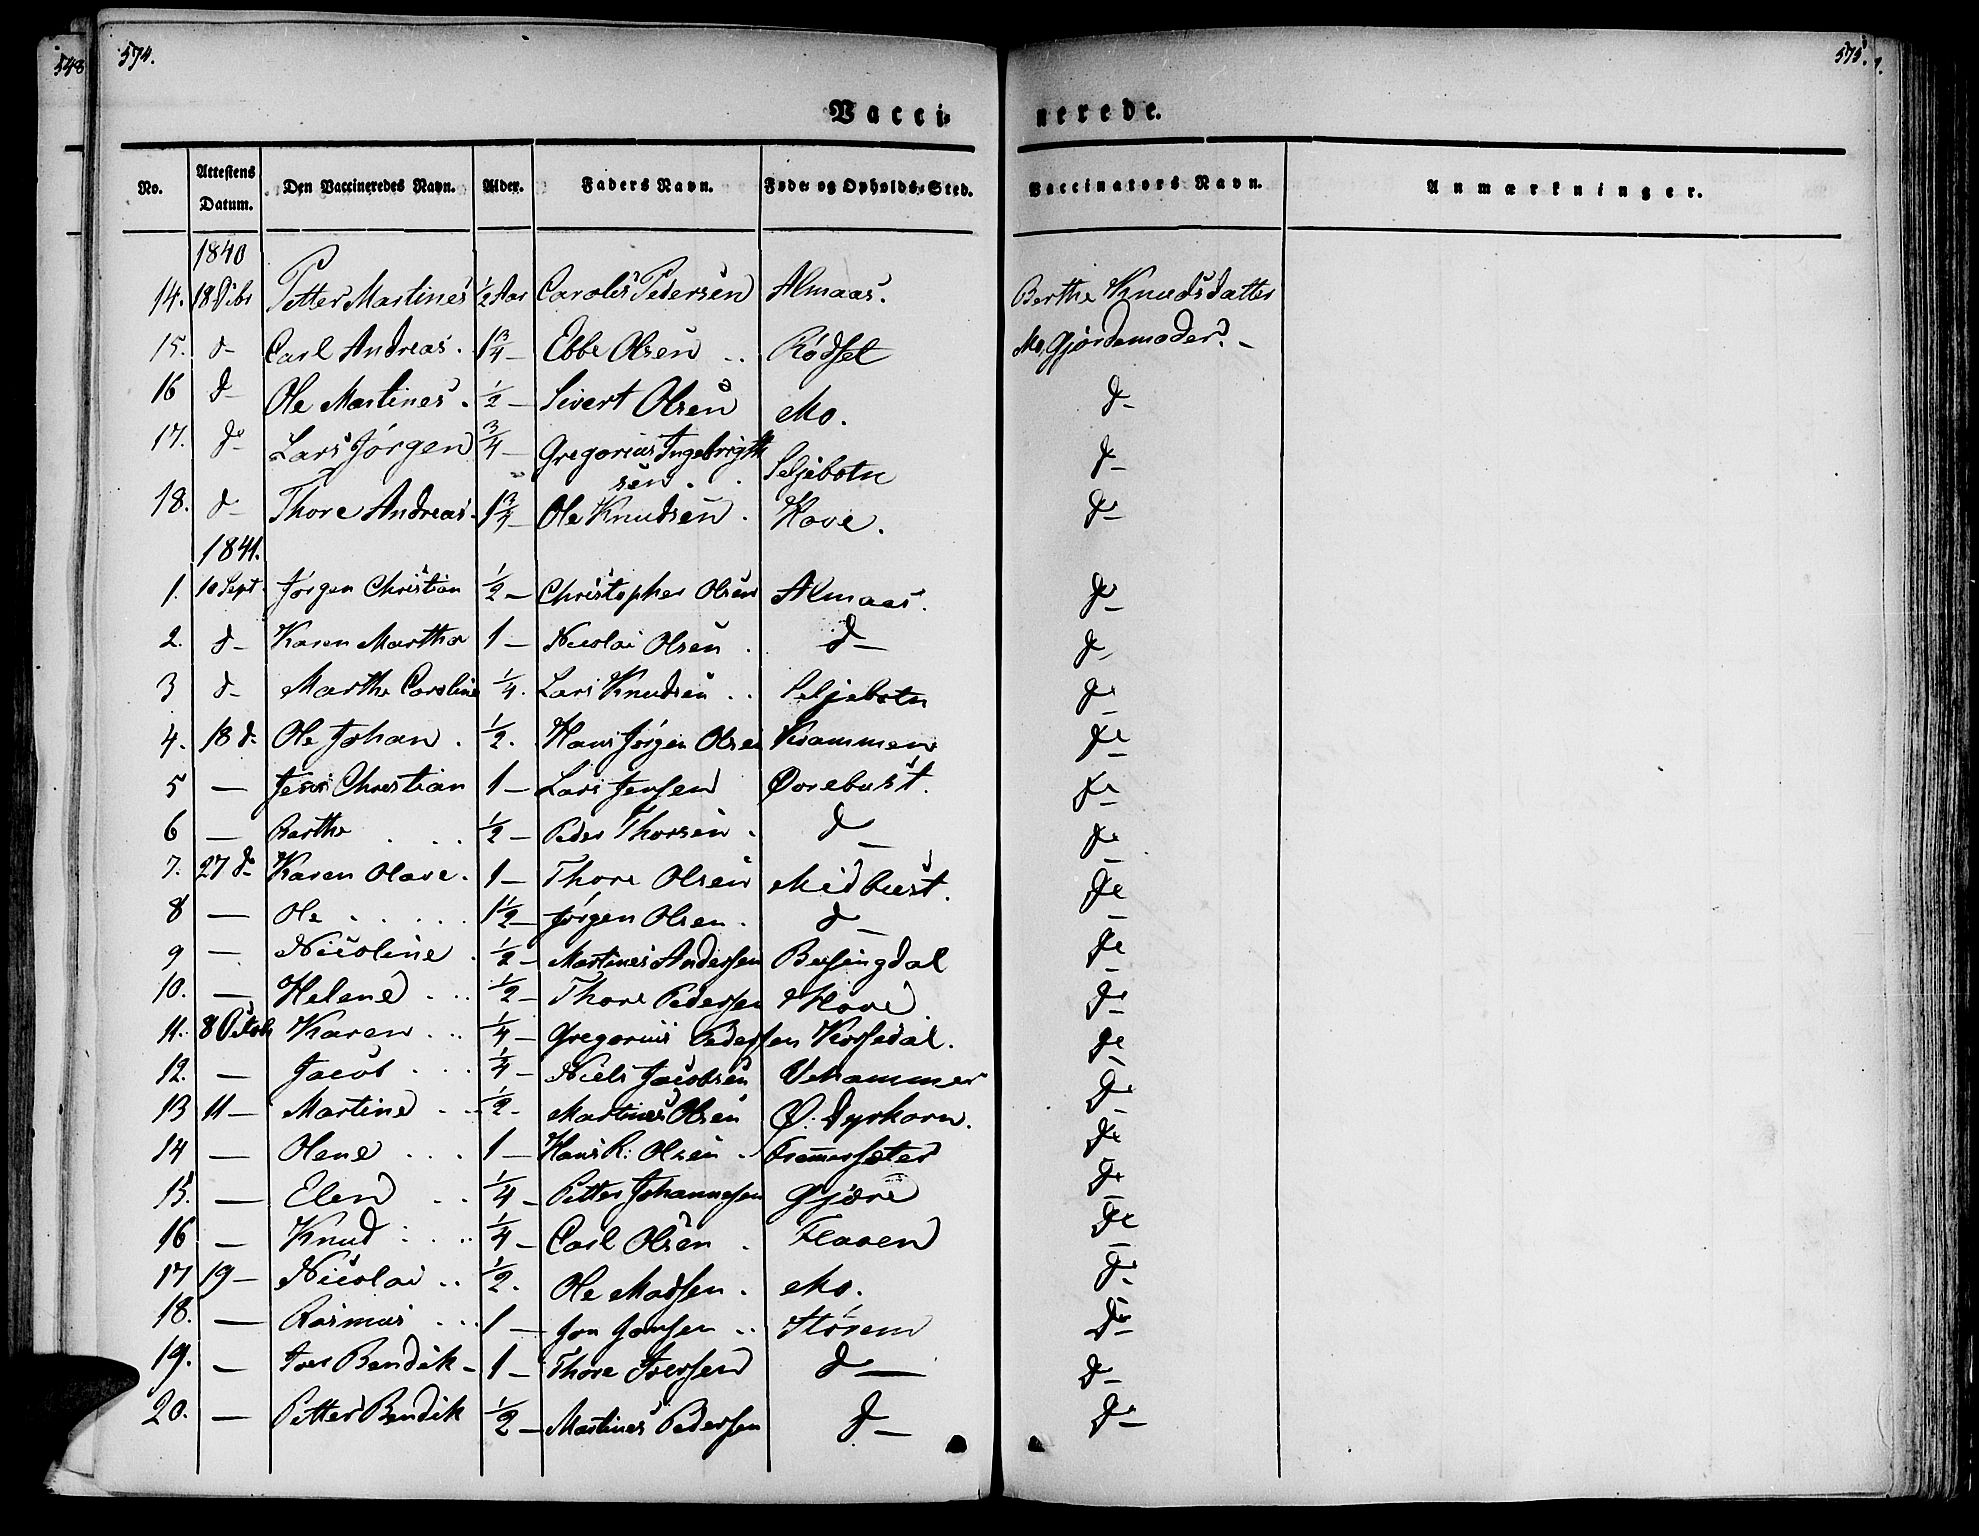 548
574.
575.
Vacci-
nerede.
No. Attestens Datum. Den Vaccineredes Navn. Alder. Faders Navn. Føde- og Opholds-Sted. Vaccinators Navn. Anmærkninger.
1840
14. 18 Petter Martines ½ Aar Carolus Pedersen Almaas. Berthe Knudsdatter
15. d- Carl Andreas. 1¾ - Ebbe Olsen .. Rødset Mo, Gjordemoder. -
16 d- Ole Martines. ½ - Sivert Olsen Mo. d-
17. d- Lars Jørgen ¾ - Gregorius Ingebrigth
sen. Seljebotn d-
18. d- Thore Andreas. 1¾ - Ole Knudsen. Hove. d-
1841.
1. 10 Sept. Jørgen Christian ½ - Christopher Olsen Almaas. d-
2. d- Karen Martha 1 - Nicolai Olsen. d- d-
3 d- Marthe Caroline ¼. Lars Knudsen .. Seljebotn d-
4. 18 d- Ole Johan. ½. Hans Jørgen Olsen Krammen d-
5 - Jens Christian 1 - Lars Jensen Øvrebust. d-
6 - Berthe ... ½ - Peder Thorsen. d- d-
7. 27 d- Karen Olave. 1 - Thore Olsen Midbust. d-
8 - Ole ..... 1½ - Jørgen Olsen. d- d-
9 - Nicoline. ½ - Martines Anderssen Bersingdal d-
10. - Helene ... ½ - Thore Pederssen Hove. d-
11. 8 Karen ... ¼ - Gregorius Pederssen Korsedal. d-
12. - Jacob ... ¼ - Niels Jacobsen Uthammer d-
13 11 - Martine ... ½ - Martines Olsen Ø. Dyrkorn. d-
14 - Olene ... 1 - Hans R. Olsen. Fremmersæter d-
15. - Elen .. ¼ - Petter Johannesen Gjære d-
16 - Knud .... ¼ - Carl Olsen. Flaaen d-
17 19 - Nicolai .. ½. Ole Madsen. Mo. d-
18. - Rasmus ... 1 - Jon Jonsen .. Støren d-
19. - Iver Bendik - 1 - Thore Iversen d- d-
20. - Petter Bendik ½ - Martines Pedersen d- d-